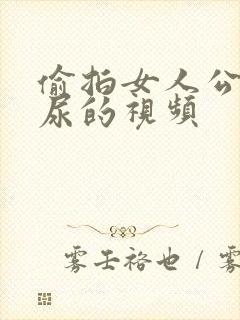 偷拍女人公
尿的視頻
雾王袼也 / 雾